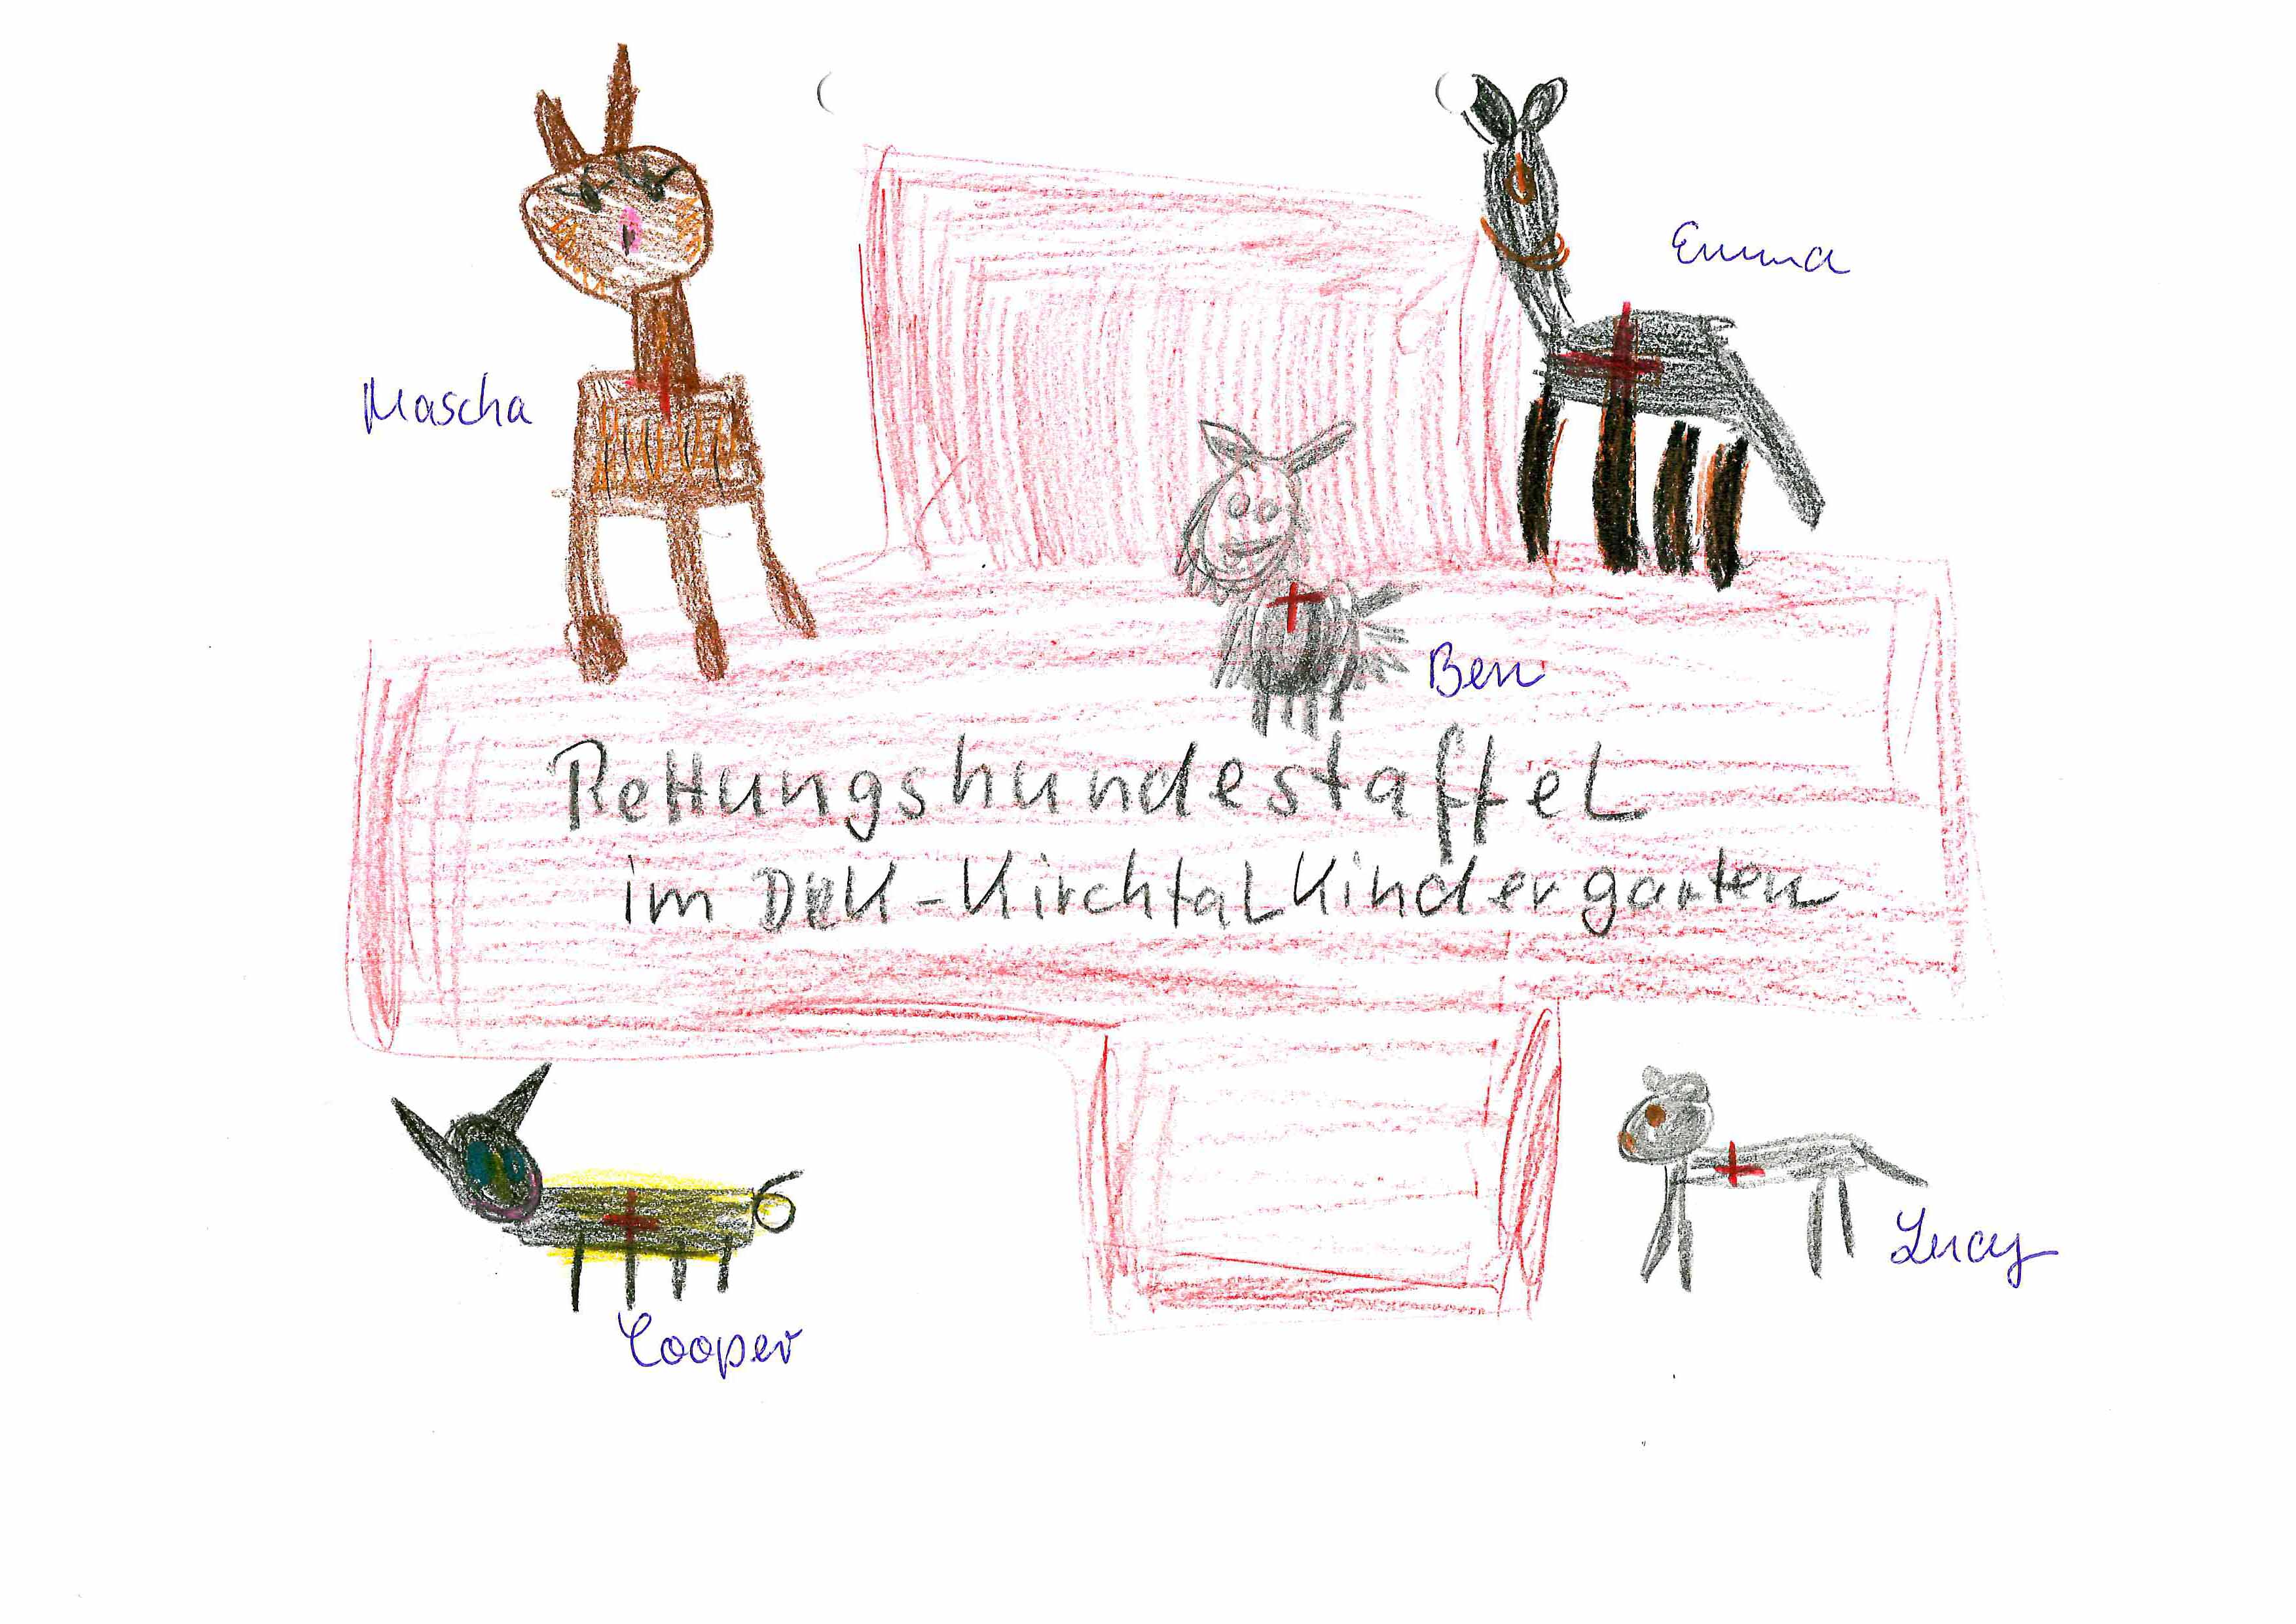 Emma
Mascha
Ben
Rettungshundestaffel
im DRK-Kirchtalkindergarten
Cooper
Lucy